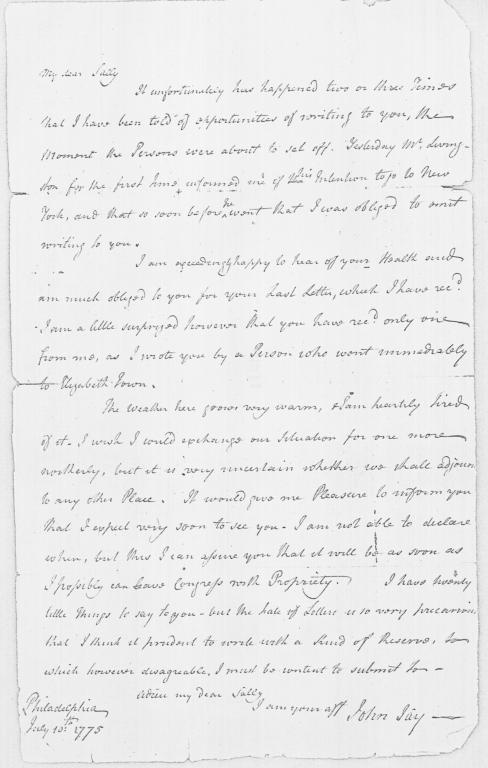 My dear Sally
It unfortunately has happened two or three Times
that I have been told of opportunities of writing to you, the
Moment the Persons were about to set off. Yesterday Mr. Living-
ston for the first time informed me of his Intention to go to New
York, and that so soon before he went that I was obliged to omit
writing to you.
I am exceedingly happy to hear of your Health and
am much obliged to you for your Last Letter, which I have recd.
I am a little surprized however that you have recd. only one
from me, as I wrote you by a Person who went immediately
to Elizabeth Town.
The weather here grows very warm, & I am heartily tired
of it. I wish I could exchange our Situation for one more
northerly, but it is very uncertain whether we shall adjourn
to any other Place. It would give me Pleasure to inform you
that I expect very soon to see you - I am not able to declare
when, but this I can assure you that it will be as soon as
I possibly can leave Congress with Propriety. I have twenty
little Things to say to you - but the fate of Letters is so very precarious,
that I think it prudent to write with a Kind of Reserve, to
which however disagreable, I must be content to submit to -
Adieu my Dear Sally
I am your aff
John Jay
Philadelphia
July 10th 1775